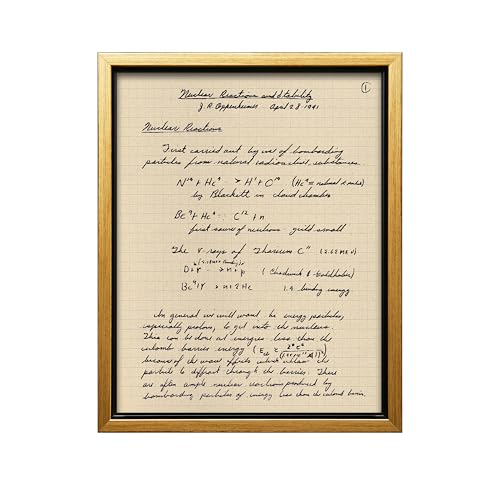 ①
Nuclear Reactions and Stability
J. R. Oppenheimer April 28 1941
Nuclear Reactions
First carried out by use of bombarding
particles from natural radioactive substances.
N¹⁴ + He⁴ → H¹ + O¹⁷ (He⁴ = natural α rules)
by Blackett in cloud chamber
Be⁹ + He⁴ C¹² + n
first source of neutrons - yield small
The γ rays of Thorium C" (2.62 MEV)
D + γ → n + p (Chadwick & Goldhaber)
Be⁹ + γ → n + 2He 1.9 binding energy
In general we will want be energy particles,
especially protons, to get into the nucleus.
This can be done at energies less than the
coulomb barrier energy
because of the wave effects which allow the
particle to diffract through the barrier. There
are often ample nuclear reactions produced by
bombarding particles of energy less than the coulomb barrier.